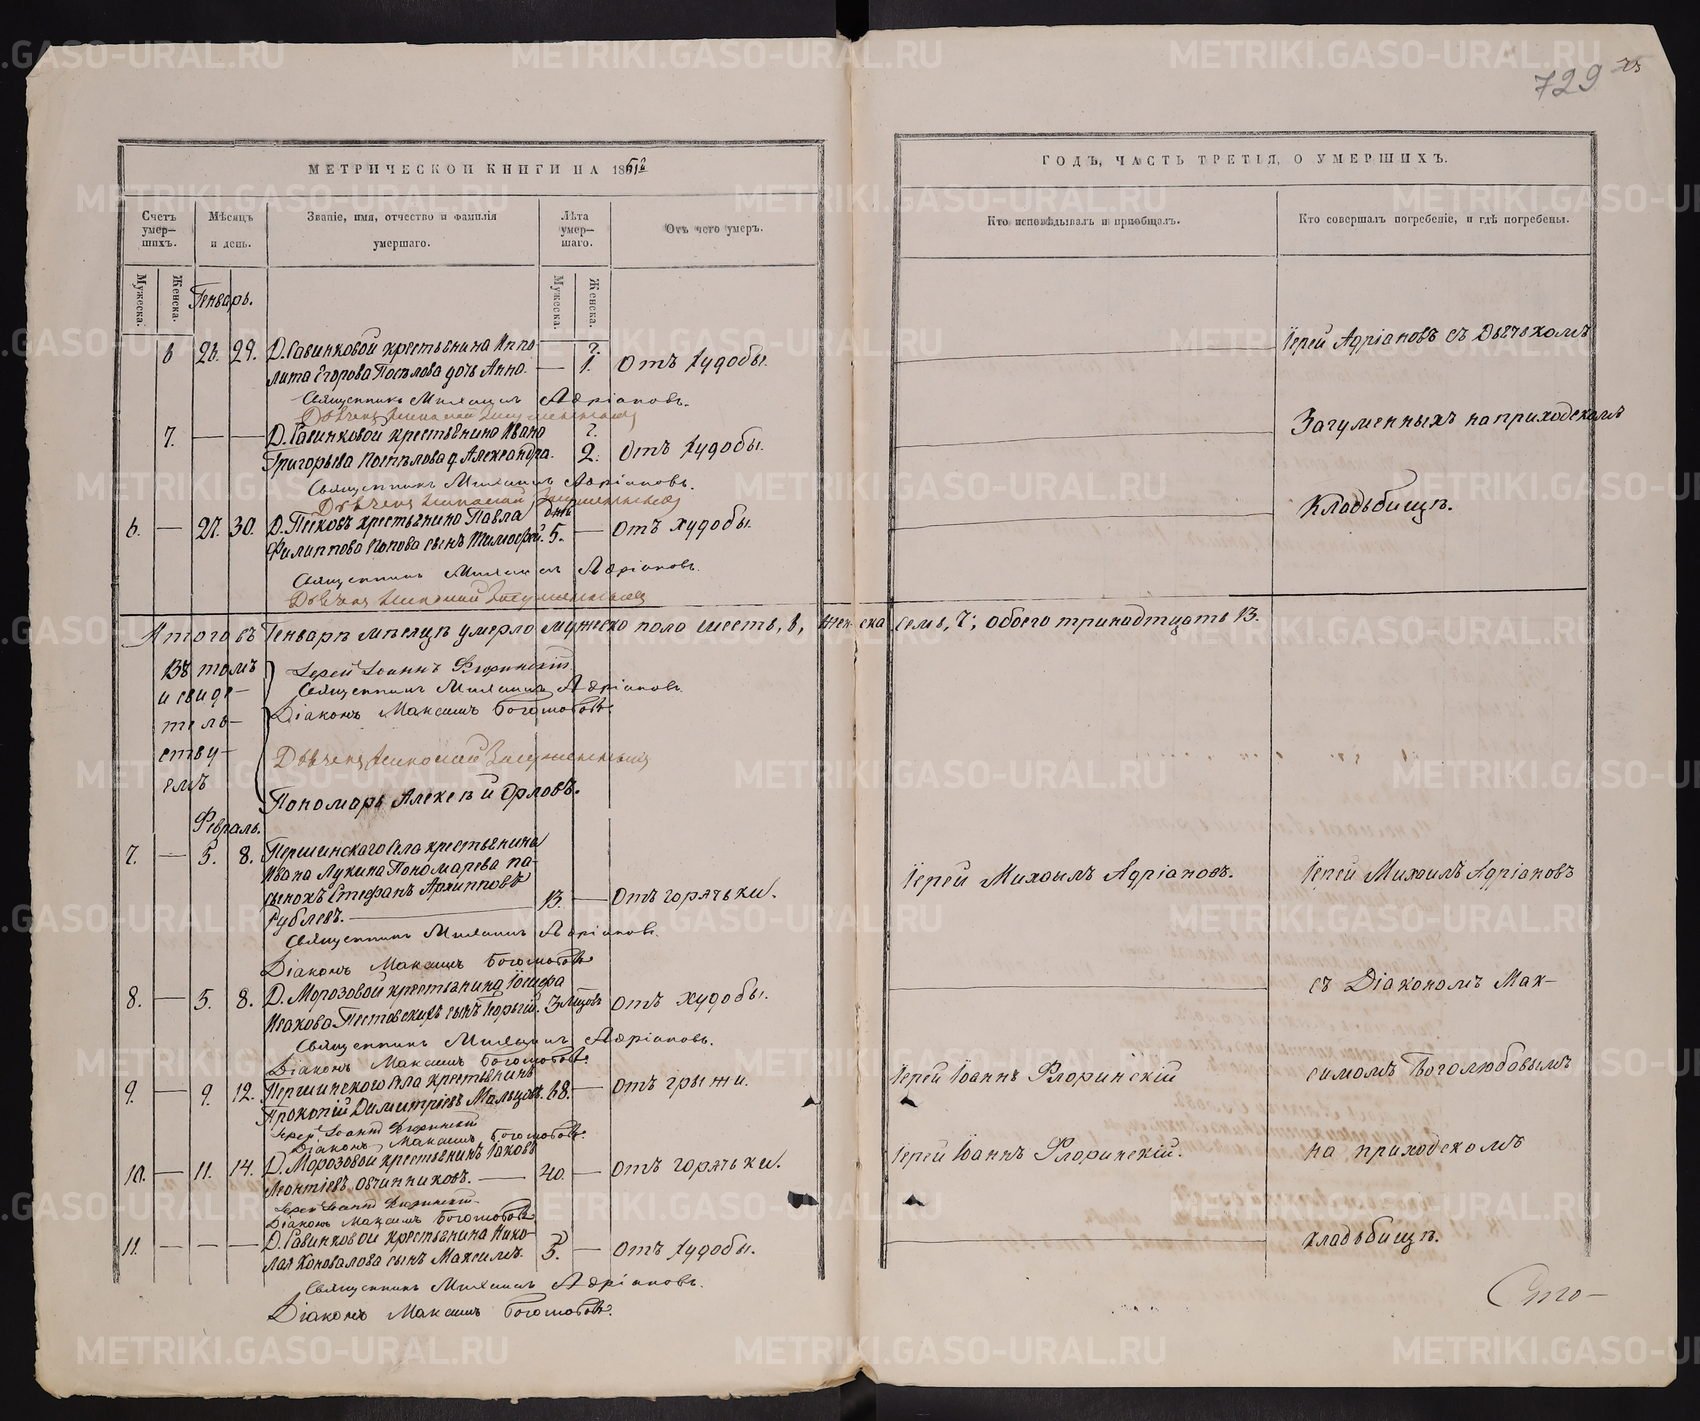 729 75
МЕТРИЧЕСКОЙ КНИГИ НА 1861й
ГОДЪ, ЧАСТЬ ТРЕТІЯ, О УМЕРШИХЪ.
Счетъ умер-шихъ.
Мѣсяцъ и день.
Званіе, имя, отчество и фамилія умершаго.
Лѣта умер-шаго.
Отъ чего умеръ.
Кто исповѣдывалъ и пріобщалъ.
Кто совершалъ погребеніе, и гдѣ погребены.
Мужеска. Женска.
Мужеска. Женска.
Генварь.
6 26. 29. Д. Савинковой крестьянина Иппо-
лита Егорова Поспѣлова дочь Анна. — 1. Отъ худобы.
Священникъ Михаилъ Адріановъ.
Дьячекъ Николай Загуменныхъ
7. — — Д. Савинковой крестьянина Ивана
Григорьева Поспѣлова д. Александра. 2. Отъ худобы.
Священникъ Михаилъ Адріановъ.
Дьячекъ Николай Загуменныхъ
6. — 27. 30. Д. Песковъ крестьянина Павла
Филиппова Попова сынъ Тимофей. 5. — Отъ худобы.
Священникъ Михаилъ Адріановъ.
Дьячекъ Николай Загуменныхъ
Іерей Адріановъ съ Дьячкомъ
Загуменныхъ на приходскомъ
Кладбищѣ.
Итого въ Генварѣ мѣсяцѣ умерло мужеска пола шесть, 6, женска семь, 7; обоего тринадтцать 13.
Въ томъ
и свиде-
тель-
ству-
емъ
Іерей Іоаннъ Флоринскій
Священникъ Михаилъ Адріановъ.
Діаконъ Максимъ Боголюбовъ.
Дьячекъ Николай Загуменныхъ
Пономарь Алексѣй Орловъ.
Февраль.
7. — 5. 8. Першинскаго села крестьянина
Ивана Лукина Пономарева па-
сынокъ Стефанъ Архиповъ
Рублевъ. — 13. — Отъ горячьки.
Священникъ Михаилъ Адріановъ.
Діаконъ Максимъ Боголюбовъ.
Іерей Михаилъ Адріановъ.
Іерей Михаилъ Адріановъ
8. — 5. 8. Д. Морозовой крестьянина Іосифа
Исакова Пестовскихъ сынъ Георгій. 3 мѣсяц. Отъ худобы.
Священникъ Михаилъ Адріановъ.
Діаконъ Максимъ Боголюбовъ.
съ Діакономъ Мак-
9. — 9. 12. Першинского села крестьянинъ
Прокопій Димитріевъ Мальцовъ. 68. — Отъ грыжи.
Іерей Іоаннъ Флоринскій
Діаконъ Максимъ Боголюбовъ.
Іерей Іоаннъ Флоринскій
симомъ Боголюбовымъ
10. — 11. 14. Д. Морозовой крестьянинъ Іаковъ
Леонтіевъ Овчинниковъ. — 40. — Отъ горячьки.
Іерей Іоаннъ Флоринскій
Діаконъ Максимъ Боголюбовъ.
Іерей Іоаннъ Флоринскій.
на приходскомъ
11. — — — Д. Савинковой крестьянина Нико-
лая Коновалова сынъ Максимъ. 3. — Отъ худобы.
Священникъ Михаилъ Адріановъ.
Діаконъ Максимъ Боголюбовъ.
кладбищѣ.
METRIKI.GASO-URAL.RU